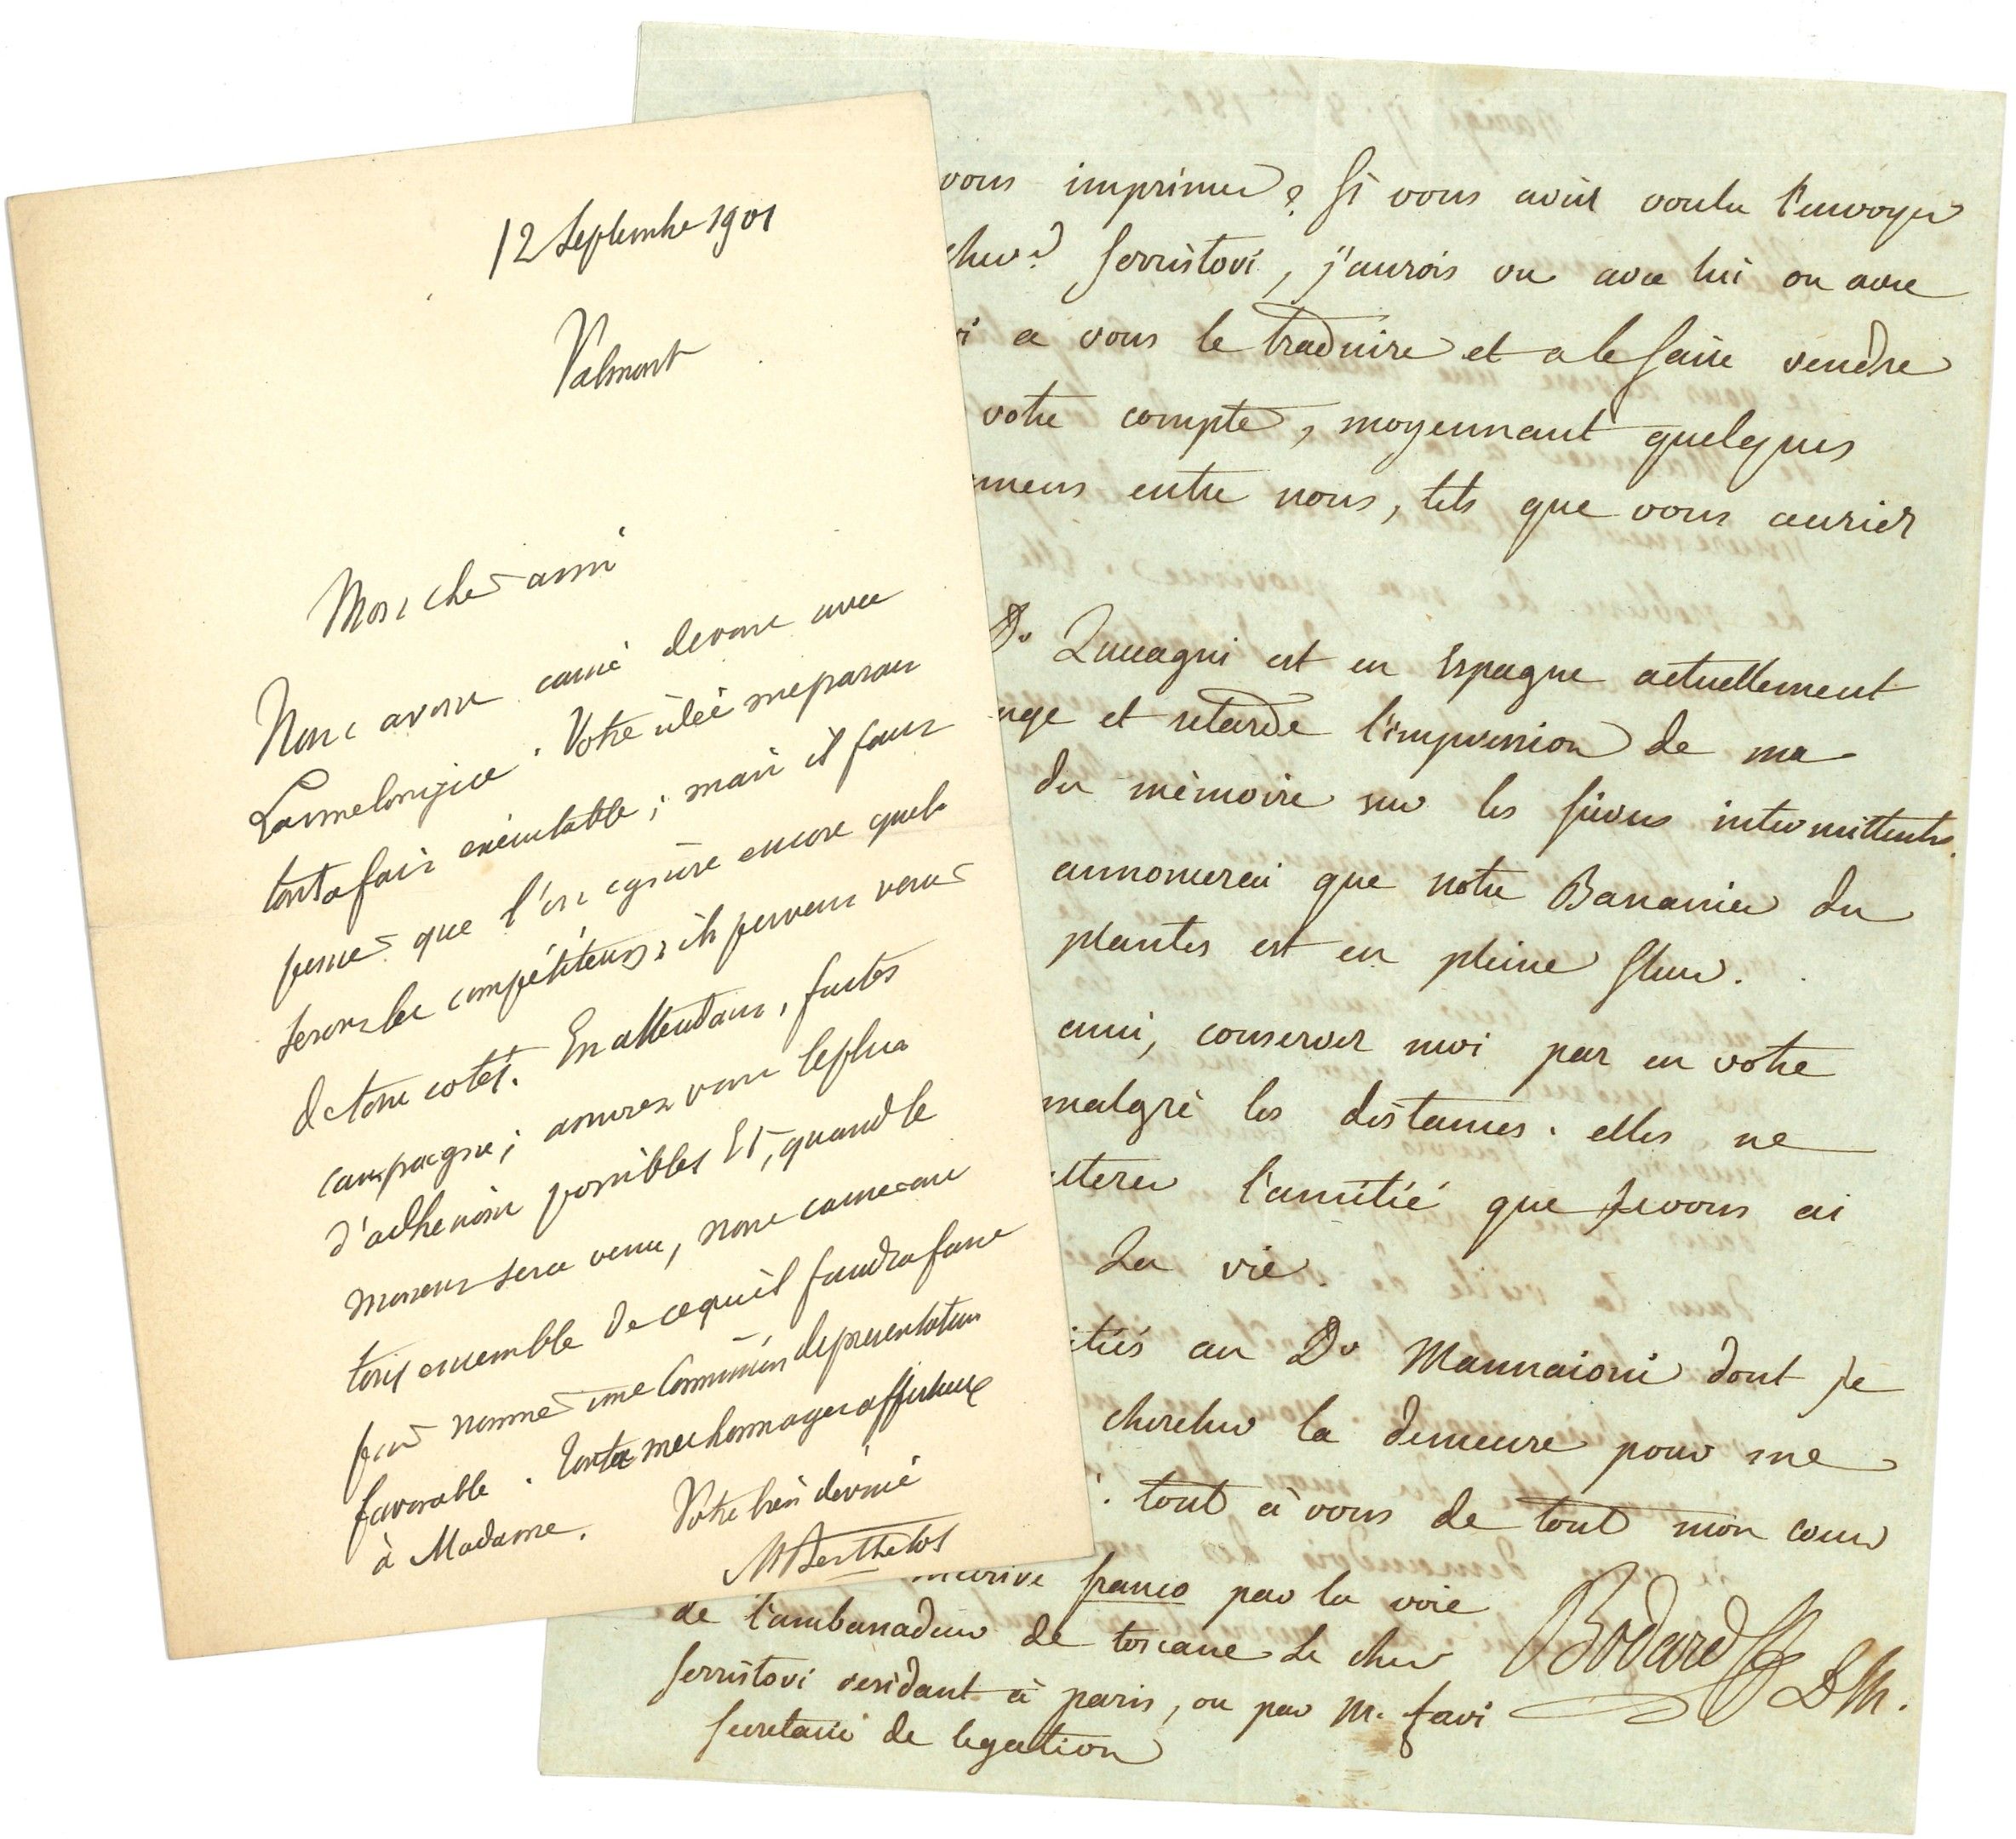 12 Septembre 1901
Valmont
Mon cher ami
Nous avons causé devous avec
Votre idée meparaît
toutafait exécutable; mais il faut
penser que l'on ignore encore quels
seront les compétiteurs: ils peuvent venir
detous cotés. En attendant, faites
campagne; assurez vous leplus
d'adhésions possibles Et, quand le
moment sera venu, nous causerons
tous ensemble de cequ'il faudra faire
pour nommer une Commission depresentation
favorable. Toutes meshommages affectueux
à Madame. Votre bien dévoué
MBerthelot
vous imprimer? Si vous aviéz voulu l'envoyer
chev.r ferristori, j'aurois vu avec lui ou avec
a vous le traduire et a le faire vendre
votre compte, moyennant quelques
mens entre nous, tels que vous auriéz
Dr Zuccagni est en Espagne actuellement
et retarde l'impression de ma
du mémoire sur les fièvres intermittentes.
annoncerai que notre Bananier du
plantes est en pleine fleur.
ami, conservez moi par en votre
malgré les distances. elles ne
altérer l'amitié que je vous ai
La vie.
itiés au Dr Mannaioni dont je
chercher la demeure pour me
tout à vous de tout mon coeur
franco par la voie
de l'ambassadeur de toscane Le chev
ferristori residant à paris, ou par M. favi
secretaire de legation
Bodard DM.